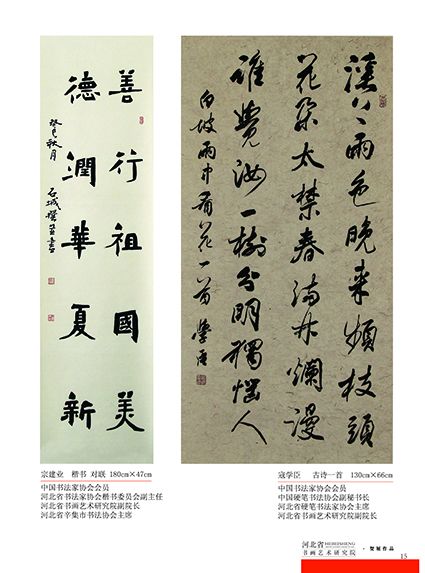 善行祖國美
德潤華夏新
癸巳秋月
石城
雨色晚来頻枝頭
花朵太禁春滿林爛漫
誰覺汝一樹分明獨惱人
白坡雨中看花一首 學臣
宗建业 楷书 对联 180cm×47cm
中国书法家协会会员
河北省书法家协会楷书委员会副主任
河北省书画艺术研究院副院长
河北省辛集市书法协会主席
寇学臣 古诗一首 130cm×66cm
中国书法家协会会员
中国硬笔书法协会副秘书长
河北省硬笔书法家协会主席
河北省书画艺术研究院副院长
河北省HEBEISHENG
书画艺术研究院
·贺展作品
15